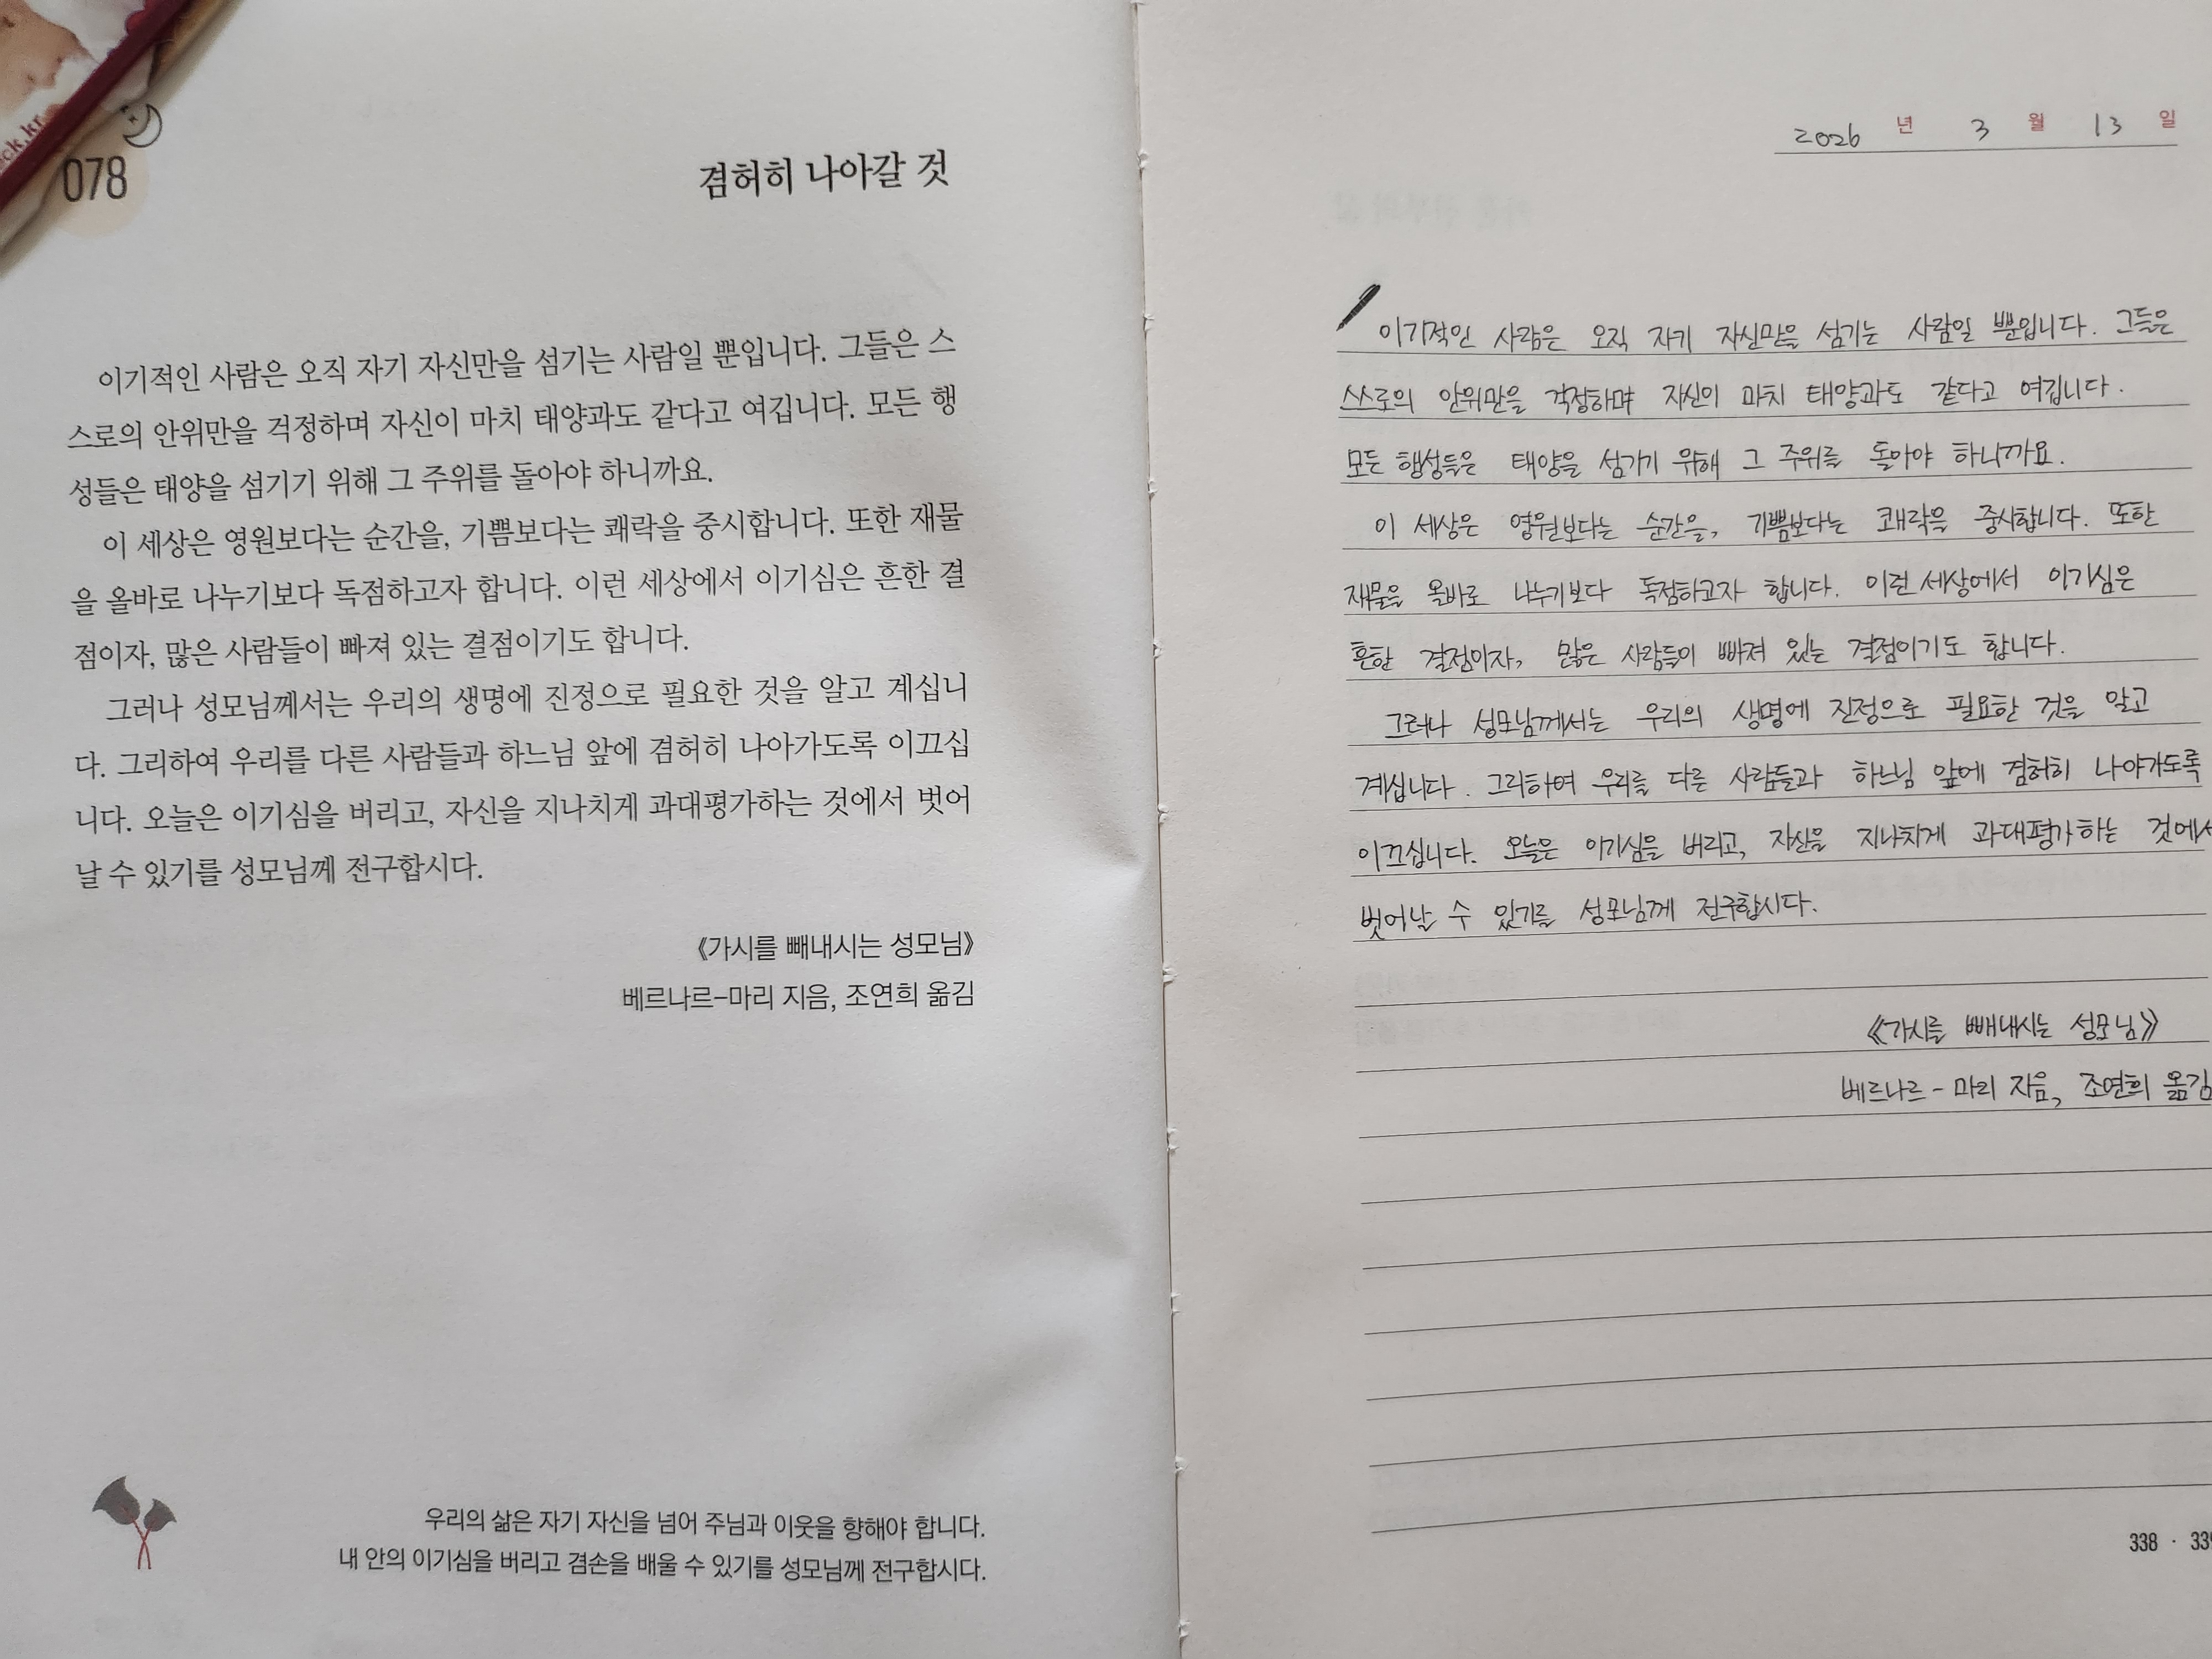 ck.kr
078
겸허히 나아갈 것
이기적인 사람은 오직 자기 자신만을 섬기는 사람일 뿐입니다. 그들은 스
스로의 안위만을 걱정하며 자신이 마치 태양과도 같다고 여깁니다. 모든 행
성들은 태양을 섬기기 위해 그 주위를 돌아야 하니까요.
이 세상은 영원보다는 순간을, 기쁨보다는 쾌락을 중시합니다. 또한 재물
을 올바로 나누기보다 독점하고자 합니다. 이런 세상에서 이기심은 흔한 결
점이자, 많은 사람들이 빠져 있는 결점이기도 합니다.
그러나 성모님께서는 우리의 생명에 진정으로 필요한 것을 알고 계십니
다. 그리하여 우리를 다른 사람들과 하느님 앞에 겸허히 나아가도록 이끄십
니다. 오늘은 이기심을 버리고, 자신을 지나치게 과대평가하는 것에서 벗어
날 수 있기를 성모님께 전구합시다.
《가시를 빼내시는 성모님》
베르나르-마리 지음, 조연희 옮김
우리의 삶은 자기 자신을 넘어 주님과 이웃을 향해야 합니다.
내 안의 이기심을 버리고 겸손을 배울 수 있기를 성모님께 전구합시다.
2026 년 3 월 13 일
이기적인 사람은 오직 자기 자신만을 섬기는 사람일 뿐입니다. 그들은
스스로의 안위만을 걱정하며 자신이 마치 태양과도 같다고 여깁니다.
모든 행성들은 태양을 섬기기 위해 그 주위를 돌아야 하니까요.
이 세상은 영원보다는 순간을, 기쁨보다는 쾌락을 중시합니다. 또한
재물을 올바로 나누기보다 독점하고자 합니다. 이런 세상에서 이기심은
흔한 결점이자, 많은 사람들이 빠져 있는 결점이기도 합니다.
그러나 성모님께서는 우리의 생명에 진정으로 필요한 것을 알고
계십니다. 그리하여 우리를 다른 사람들과 하느님 앞에 겸허히 나아가도록
이끄십니다. 오늘은 이기심을 버리고, 자신을 지나치게 과대평가하는 것에서
벗어날 수 있기를 성모님께 전구합시다.
《가시를 빼내시는 성모님》
베르나르-마리 지음, 조연희 옮김
338 · 339